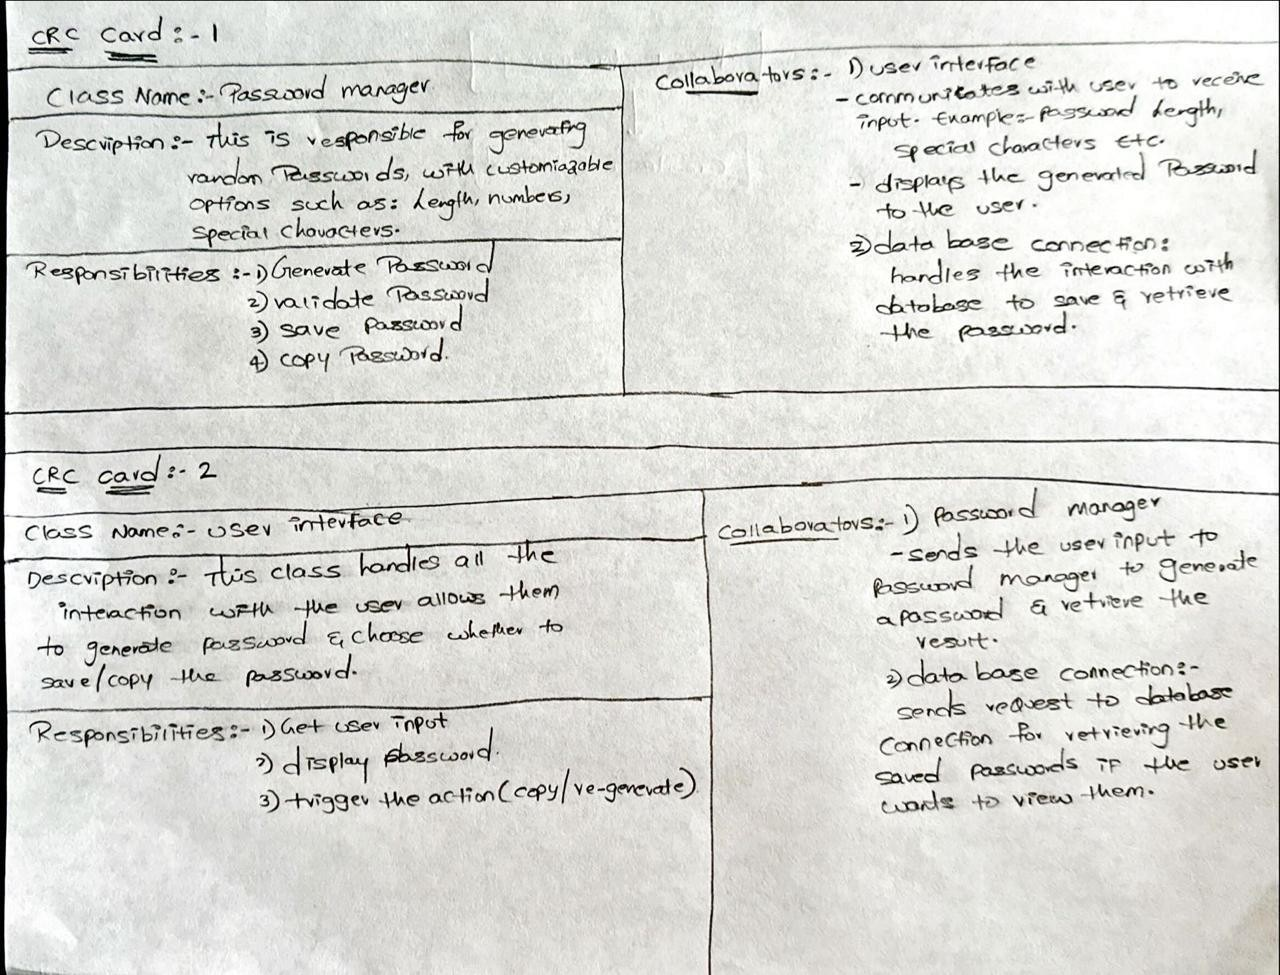 CRC Card :- 1
Class Name :- Password manager.
Description :- This is responsible for generating
random Passwords, with customiazable
options such as: Length, numbers,
special characters.
Responsibilities :- 1) Generate Password
2) validate Password
3) save Password
4) copy Password.
Collaborators :- 1) user interface
- communicates with user to receive
input. Example :- Password Length,
special characters Etc.
- displays the generated Password
to the user.
2) data base connection :
handles the interaction with
database to save & retrieve
the password.
CRC card :- 2
Class Name :- User interface
Description :- This class handles all the
interaction with the user allows them
to generate password & choose whether to
save/copy the password.
Responsibilities :- 1) Get user input
2) display password.
3) trigger the action (copy/re-generate)
Collaborators :- 1) Password manager
- sends the user input to
Password manager to generate
a password & retrieve the
result.
2) data base connection :-
sends request to database
connection for retrieving the
saved passwords if the user
wants to view them.